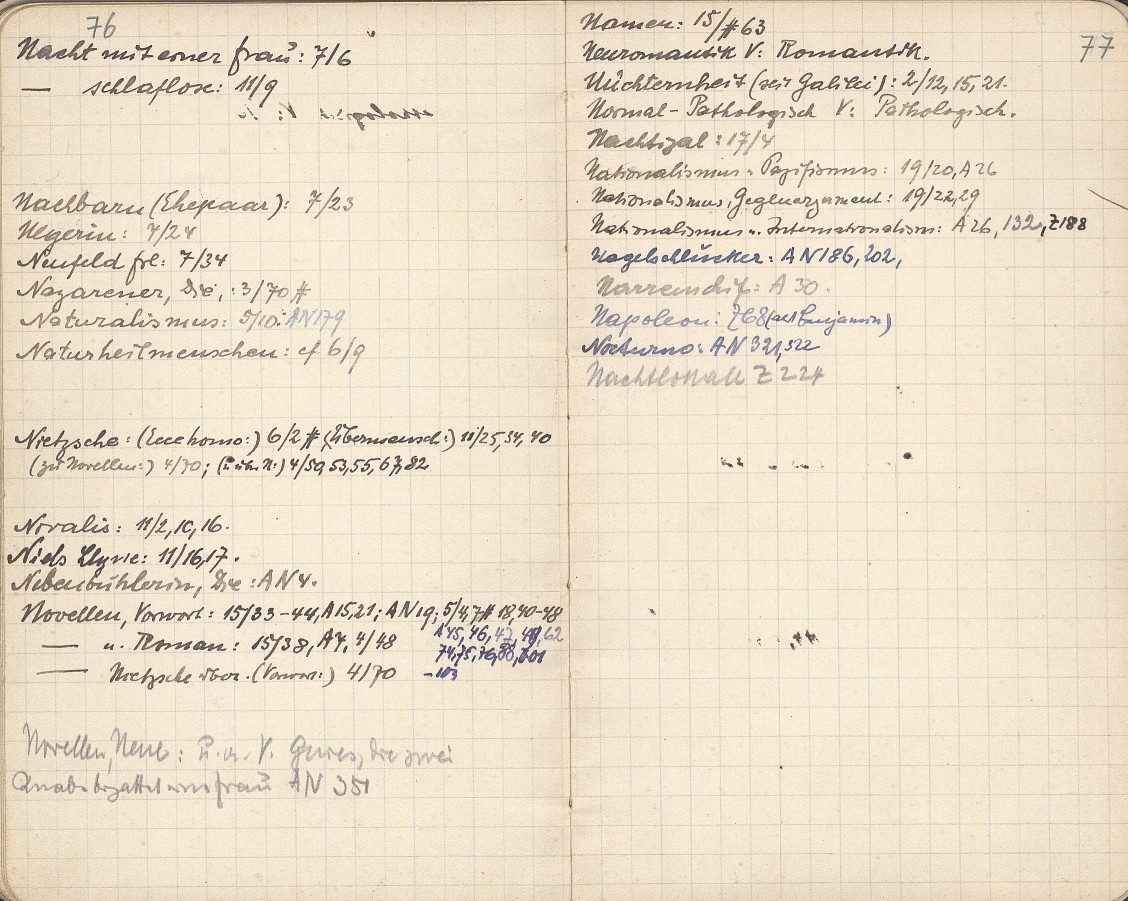 76
Nacht mit einer Frau: 7/6
— schlaflose: 11/9
Nachbarn (Ehepaar): 7/23
Negerin: 7/24
Neufeld Frl: 7/34
Nazarener, Die,: 3/70 #
Naturalismus: 5/10: AN179
Naturheilmenschen: cf 6/9
Nietzsche: (Ecce homo:) 6/2 # (Übermensch:) 11/25,34,40
(zu Novellen:) 4/70; (u üb. N:) 4/50,53,55,67,82
Novalis: 11/2,10,16.
Niels Lyne: 11/16,17.
Nebenbuhlerin, Die: AN 4.
Novellen, Vorwort: 15/33-44, A15,21; AN 19; 5/4,7# 18,40-48
A 45, 46, 47, 49, 62
— u. Roman: 15/38, A4, 4/48
74,75,76,88,101
— Nietzsche über. (Vorwort:) 4/70
-103
Novellen, Neue: u. a. V. die zwei
Frau AN 351
77
Namen: 15/#63
Neuromantik V: Romantik.
Nüchternheit (seit Galilei): 2/12,15,21.
Normal-Pathologisch V: Pathologisch.
Nachtigal: 17/4
Nationalismus u Pazifismus: 19/20, A 26
Nationalismus, Gegenargument: 19/22,29
Nationalismus u. Internationalism: A 26, 132, Z188
Nagelschlucker: AN 186, 202,
Narrenschif: A 30.
Napoleon: Z68 (Benjamin)
Nocturno: AN 321,322
Nachtlokall Z 224